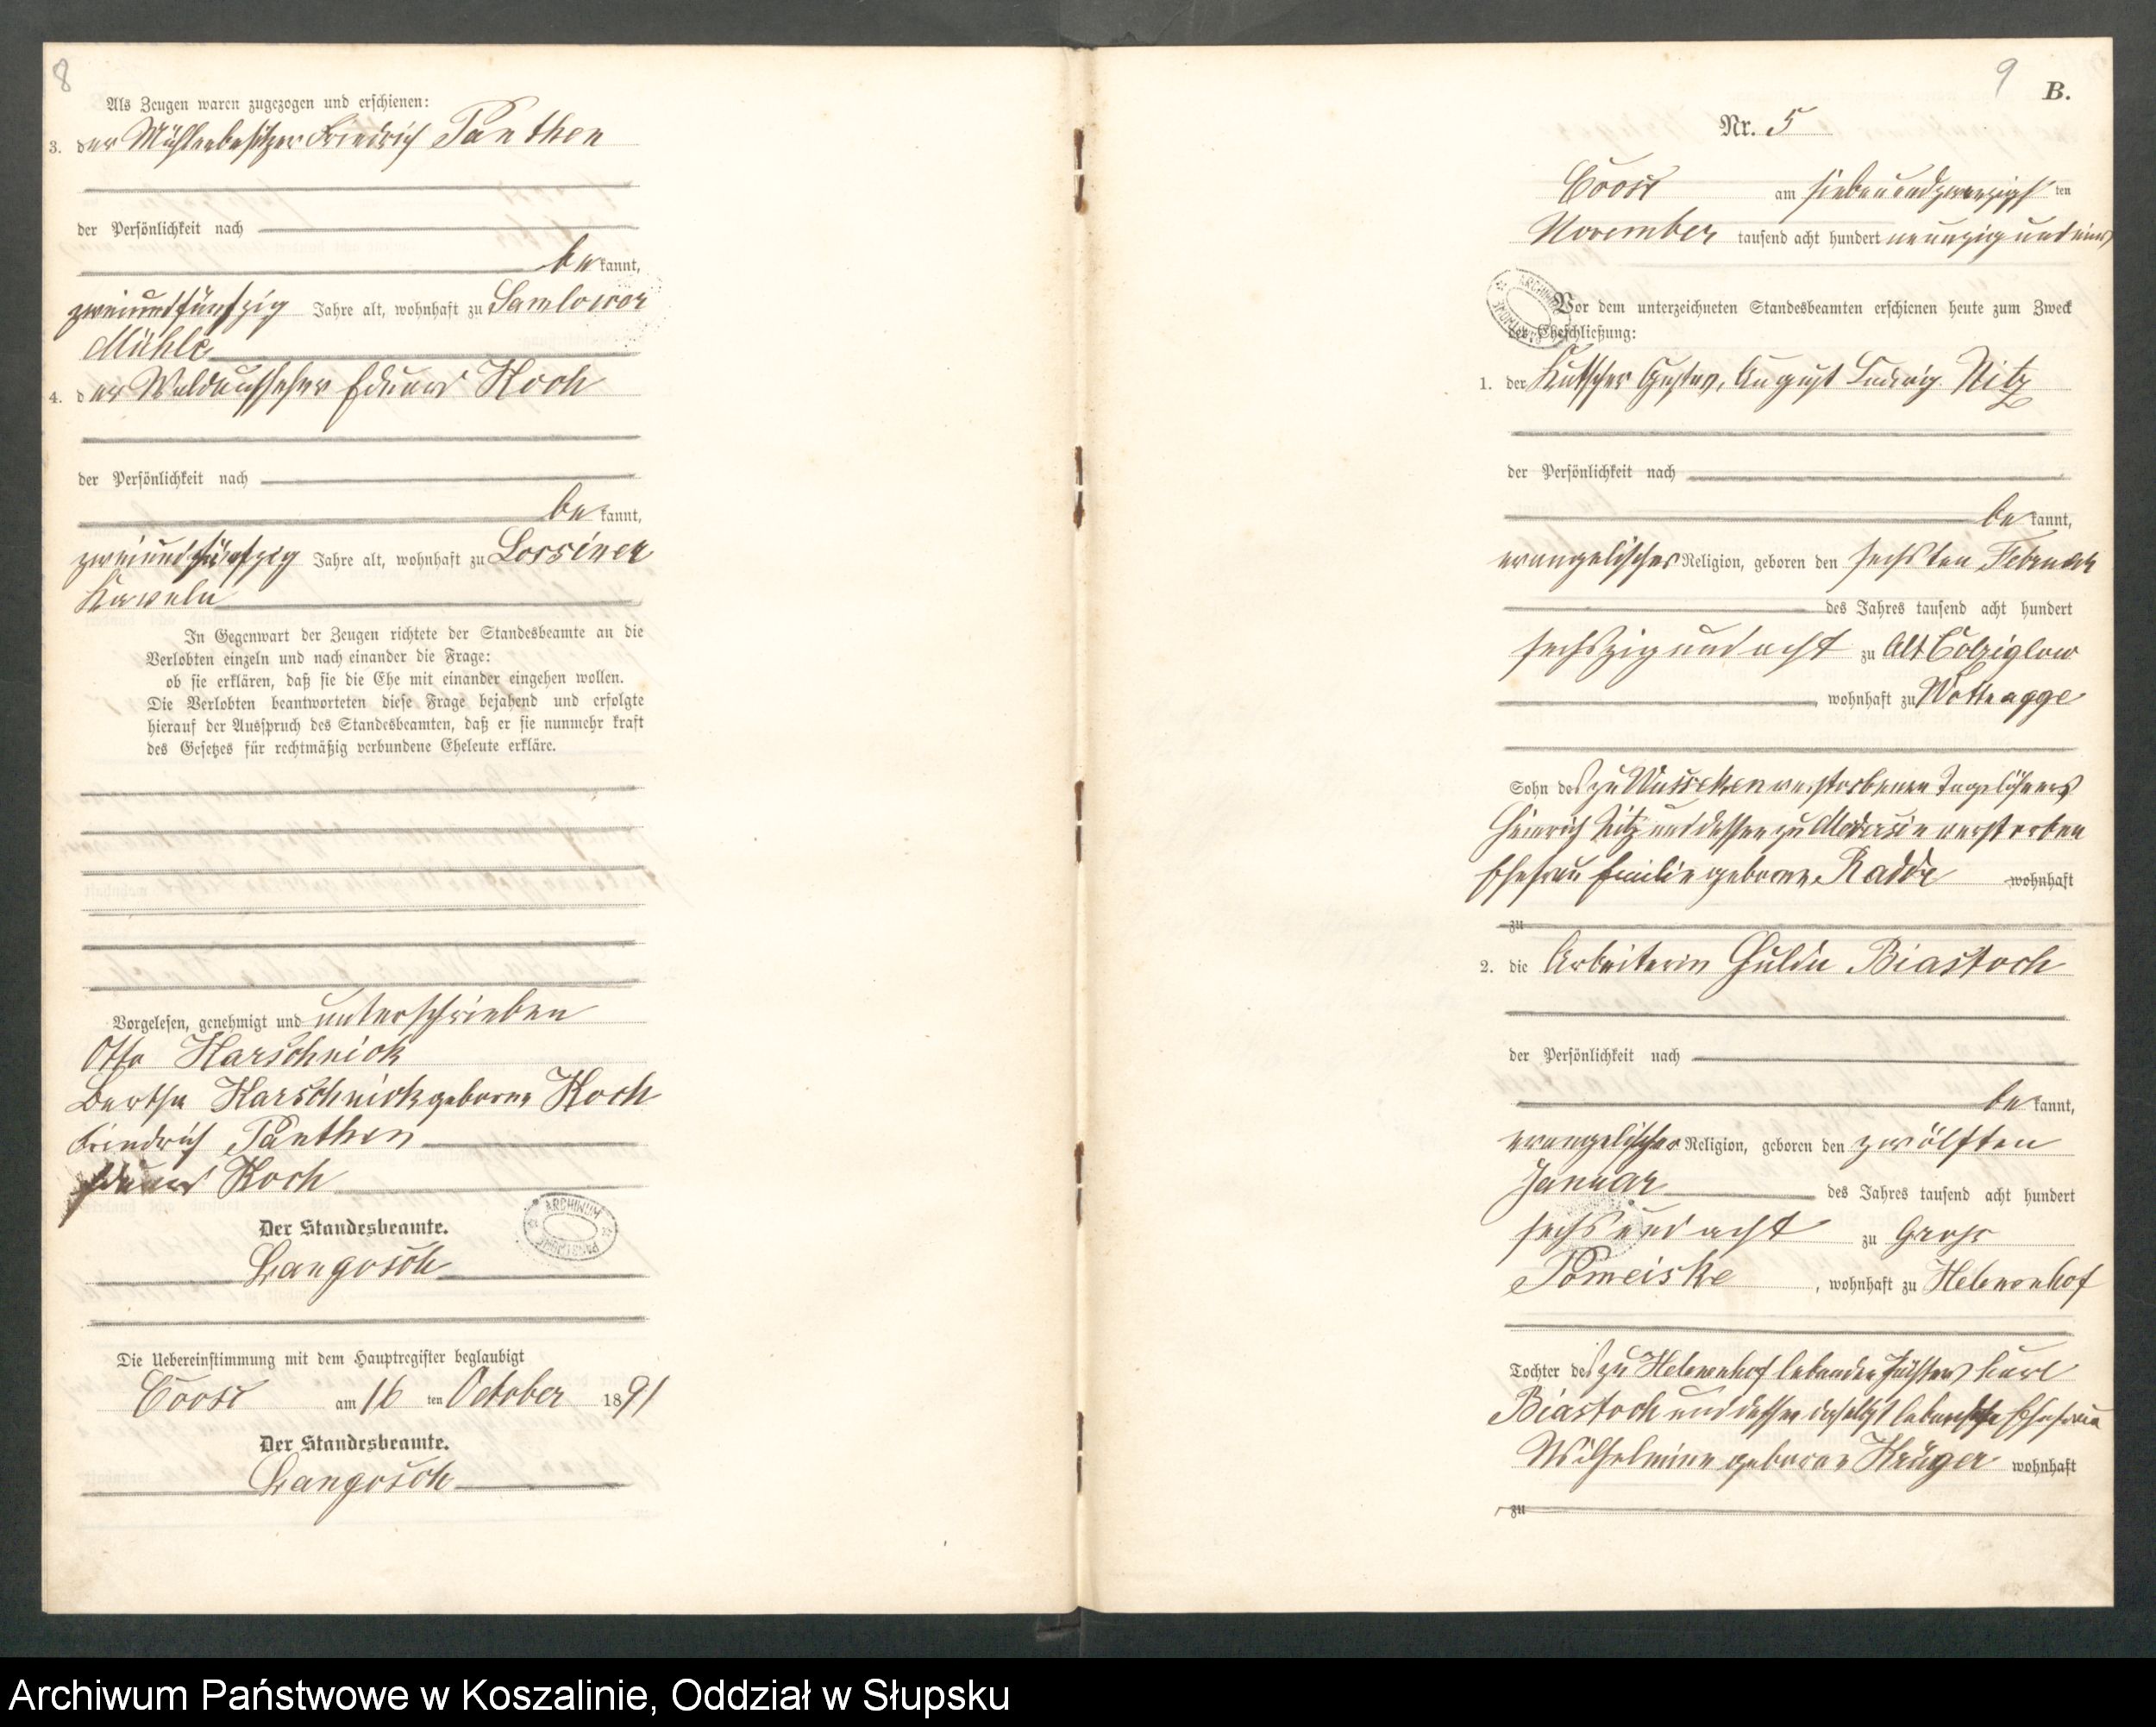 8
Als Zeugen waren zugezogen und erschienen:
3. der Mühlenbesitzer Friedrich Panthen
der Persönlichkeit nach
bekannt,
zweiundfünfzig Jahre alt, wohnhaft zu Samlower
Mühle
4. der Waldaufseher Eduard Koch
der Persönlichkeit nach
bekannt,
zweiundfünfzig Jahre alt, wohnhaft zu Lossiner
Kaveln
In Gegenwart der Zeugen richtete der Standesbeamte an die
Verlobten einzeln und nach einander die Frage:
ob sie erklären, daß sie die Ehe mit einander eingehen wollen.
Die Verlobten beantworteten diese Frage bejahend und erfolgte
hierauf der Ausspruch des Standesbeamten, daß er sie nunmehr kraft
des Gesetzes für rechtmäßig verbundene Eheleute erkläre.
Vorgelesen, genehmigt und unterschrieben
Otto Karschnick
Bertha Karschnick geborne Koch
Friedrich Panthen
Eduard Koch
Der Standesbeamte.
Langosch
Die Uebereinstimmung mit dem Hauptregister beglaubigt
Coose am 16 ten October 1891
Der Standesbeamte.
Langosch
9
B.
Nr. 5
Coose am siebenundzwanzigsten
November tausend acht hundert neunzig und eins
Vor dem unterzeichneten Standesbeamten erschienen heute zum Zweck
der Eheschließung:
1. der Kutscher Gustav, August Ludwig Nitz
der Persönlichkeit nach
bekannt,
evangelischer Religion, geboren den sechsten Februar
des Jahres tausend acht hundert
sechszig und acht zu Alt Colziglow
, wohnhaft zu Wottnogge
Sohn des zu Wusseken verstorbenen Tagelöhners
Heinrich Nitz und dessen zu Modersin verstorben
Ehefrau Emilie geborne Radde wohnhaft
zu
2. die Arbeiterin Hulda Biastoch
der Persönlichkeit nach
bekannt,
evangelischer Religion, geboren den zwölften
Januar des Jahres tausend acht hundert
sechs und acht zu Gross
Pomeiske , wohnhaft zu Helenenhof
Tochter des zu Helenenhof lebenden Försters Karl
Biastoch und dessen daselbst lebende Ehefrau
Wilhelmine geborne Krüger wohnhaft
zu
Archiwum Państwowe w Koszalinie, Oddział w Słupsku